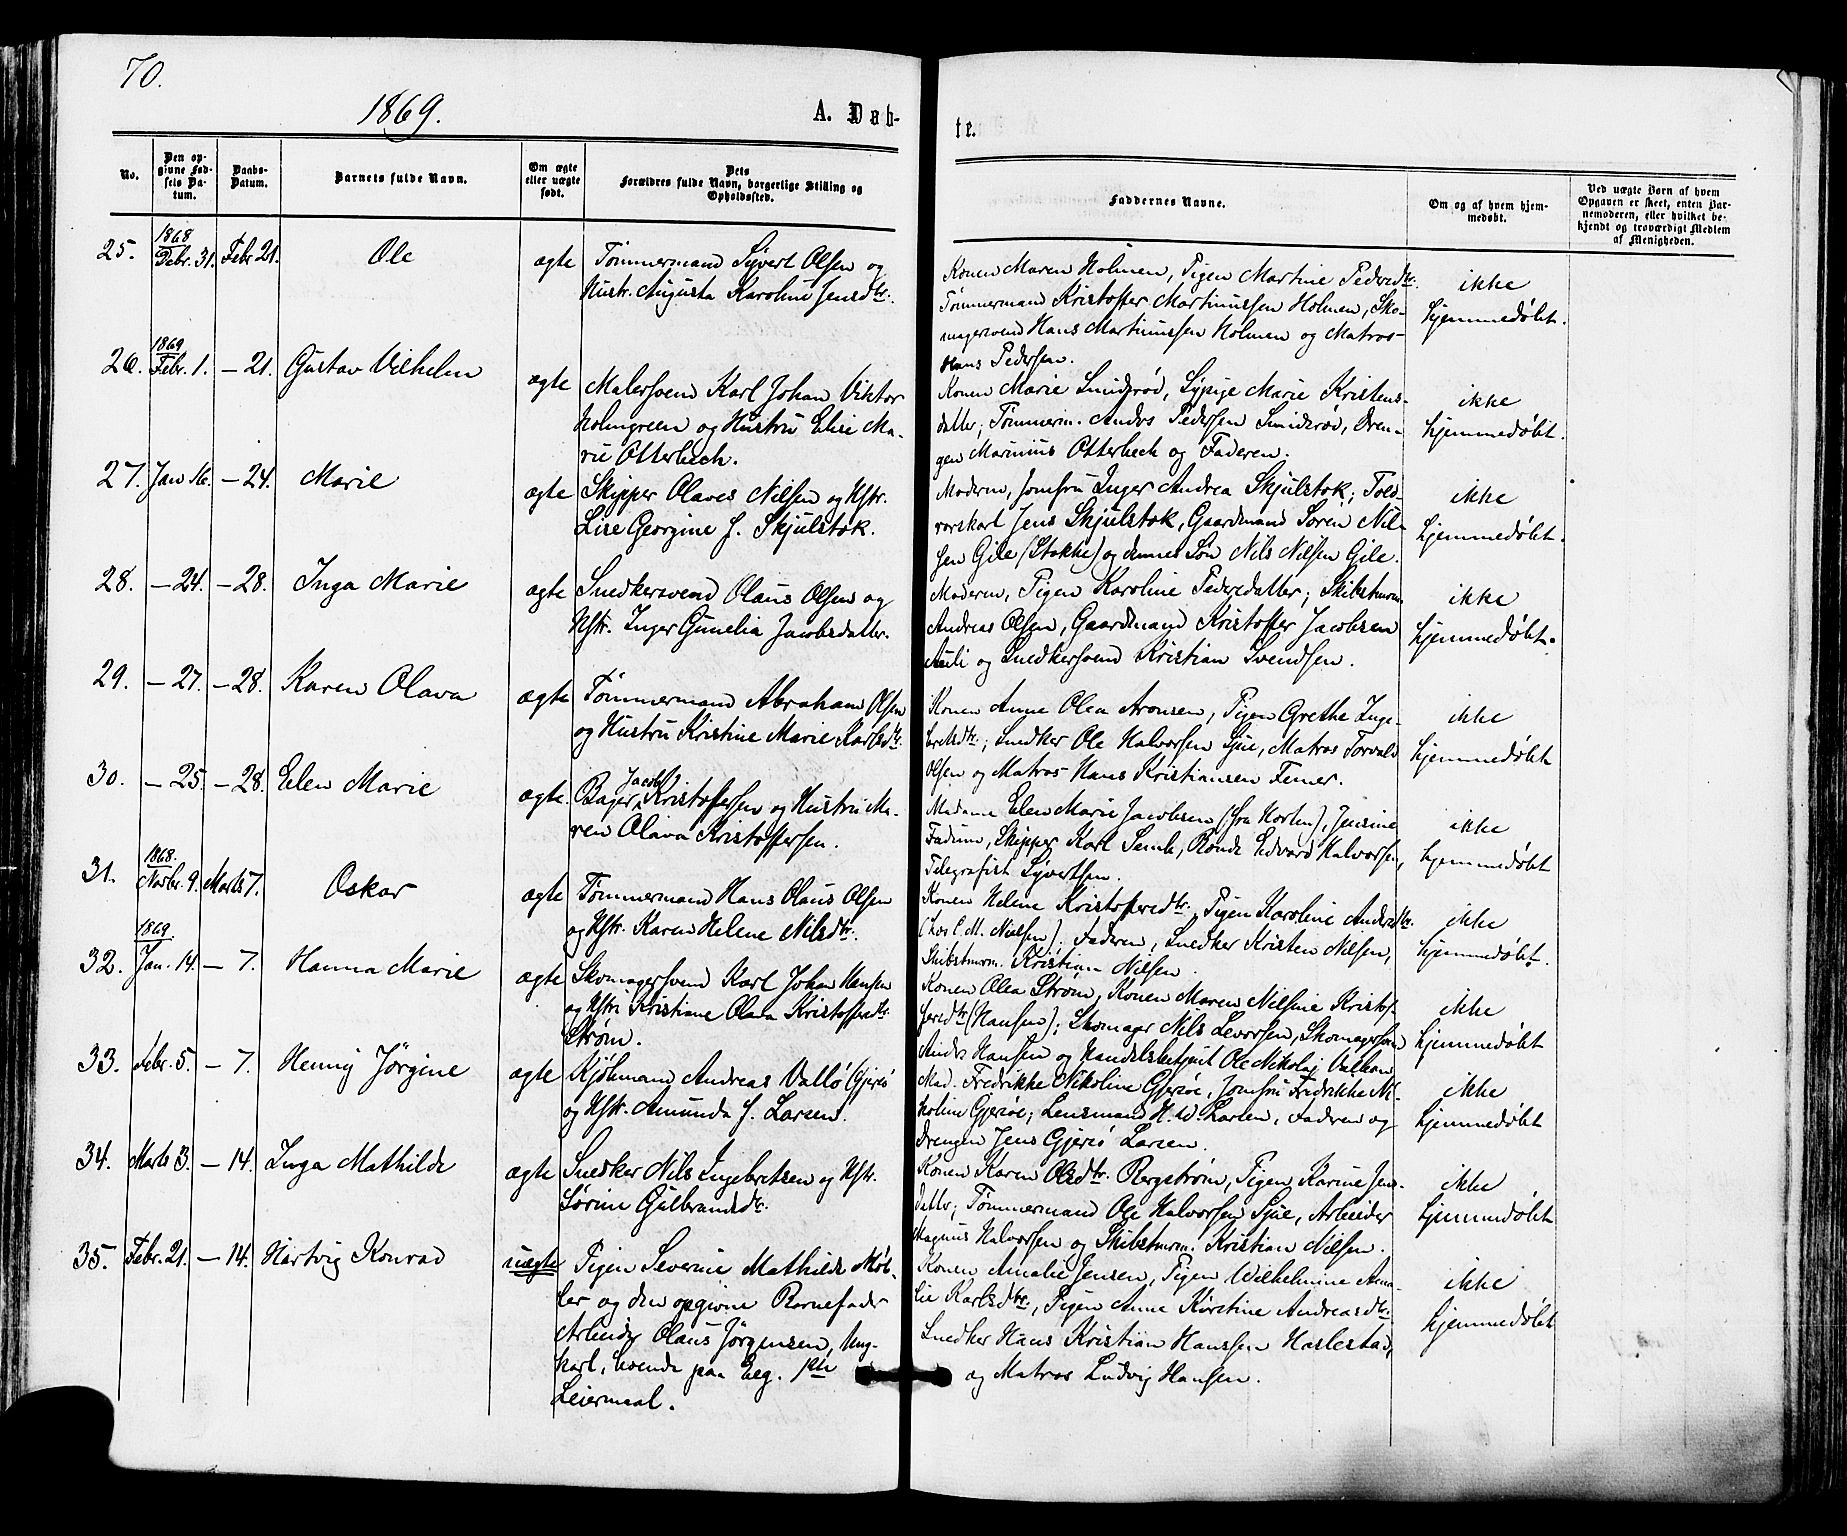 70.
1869.
A. Døb-
te.
No.
Den op-
givne Fød-
sels Da-
tum.
Daabs-
Datum.
Barnets fulde Navn.
Om ægte
eller uægte
født.
Dets
Forældres fulde Navn, borgerlige Stilling og
Opholdssted.
Faddernes Navne.
Om og af hvem hjem-
medøbt.
Ved uægte Børn af hvem
Opgaven er skeet, enten Bar-
nemoderen, eller hvilket be-
kjendt og troværdigt Medlem
af Menigheden.
25. 1868 Debr. 31. Febr 21. Ole ægte
Tømmermand Syvert Olsen og
Hustr. Augusta Karoline Jensdtr.
Konen Maren Holmen, Pigen Martine Pedersdtr.
Tømmermand Kristoffer Martinussen Holmen, Sko-
magersvend Hans Martinussen Holmen og Matros
Hans Pedersen.
ikke
hjemmedøbt.
26. 1869 Febr. 1. — 21. Gustav Vilhelm ægte
Malersvend Karl Johan Viktor
Holmgreen og Hustru Elise Ma-
rie Otterbech.
Konen Marie Smidsrød, Sypige Marie Kristens-
datter; Tømmerm. Anders Pedersen Smidsrød, Dren-
gen Marinius Otterbech og Faderen.
ikke
hjemmedøbt.
27. Jan 16. — 24. Marie ægte
Skipper Olaves Nilsen og Hstr.
Lise Georgine f. Skjulstok.
Moderen, Jomfru Inger Andrea Skjulstok; Told-
rorskarl Jens Skjulstok, Gaardmand Søren Nil-
sen Gile (Stokke) og dennes Søn Nils Nilsen Gile.
ikke
hjemmedøbt.
28. — 24. — 28. Inga Marie ægte
Snedkersvend Olaus Olsen og
Hstr. Inger Gunelia Jacobsdatter.
Moderen, Pigen Karoline Pedersdatter; Skibstmrm.
Andreas Olsen, Gaardmand Kristoffer Jacobsen
Auli og Snedkersvend Kristian Svendsen.
ikke
hjemmedøbt.
29. — 27. — 28. Karen Olava ægte
Tømmermand Abraham Olsen
og Hustru Kristine Marie Karlsdtr.
Konen Anne Olea Aronsen, Pigen Grethe Inge-
bretsdtr; Snedker Ole Halvorsen Sjue, Matros Torvald
Olsen og Matros Hans Kristiansen Femer.
ikke
hjemmedøbt
30. — 25. — 28. Elen Marie ægte
Bager Jacob Kristoffersen og Hustru Ma-
ren Olava Kristoffersen.
Madame Elen Marie Jacobsen (fra Horten), Jensine
Fadum, Skipper Karl Semb, Bonde Edvard Halvorsen,
Telegrafist Syvertsen.
ikke
hjemmedøbt
31. 1868. Novbr. 9. Marts 7. Oskar ægte
Tømmermand Hans Olaus Olsen
og Hstr. Karen Helene Nilsdtr.
Konen Helene Kristoffersdtr. Pigen Karoline Andersdtr.
(hos C. M. Nielsen); Faderen, Snedker Kristen Nilsen,
Skibstmrm. Kristian Nilsen.
ikke
hjemmedøbt.
32. 1869. Jan. 14. — 7. Hanna Marie ægte
Skomagersvend Karl Johan Hansen
og Hstr. Kristiane Olava Kristoffersdtr.
Strøm.
Konen Olea Strøm, Konen Maren Nilsine Kristof-
fersdtr (Hansen); Skomager Nils Levorsen, Skomagersvend
Anders Hansen og Handelsbetjent Ole Nikolaj
ikke
hjemmedøbt
33. Febr. 5. — 7. Henny Jörgine ægte
Kjöbmand Andreas Vallö Gjersö
og Hstr. Amunda f. Larsen.
Mad. Fredrikke Nikoline Gjersöe, Jomfru Fredrikke Ni-
koline Gjersöe; Lensmand H. W. Larsen, Faderen og
Drengen Jens Gjersö Larsen.
ikke
hjemmedøbt
34. Marts 3. — 14. Inga Mathilde ægte
Snedker Nils Ingebretsen og Hstr.
Sörine Gulbrandsdtr.
Konen Karen Olsdtr. Bergstrøm, Pigen Karine Jens-
datter; Tømmermand Ole Halvorsen Sjue, Arbeider
Magnus Halvorsen og Skibstmrm. Kristian Nilsen.
ikke
hjemmedøbt
35. Febr. 21. — 14. Hartvig Konrad uægte
Pigen Severine Mathilde Møl-
ler og den opgivne Barnefader
Arbeider Olaus Jörgensen, Ung-
karl, boende paa Eeg. 1ste
Leiermaal.
Konen Amalie Jensen, Pigen Wilhelmine Ama-
lie Karlsdtr, Pigen Anne Kirstine Andreasdtr.
Snedker Hans Kristian Hanssen Haslestad,
og Matros Ludvig Hansen.
ikke
hjemmedøbt